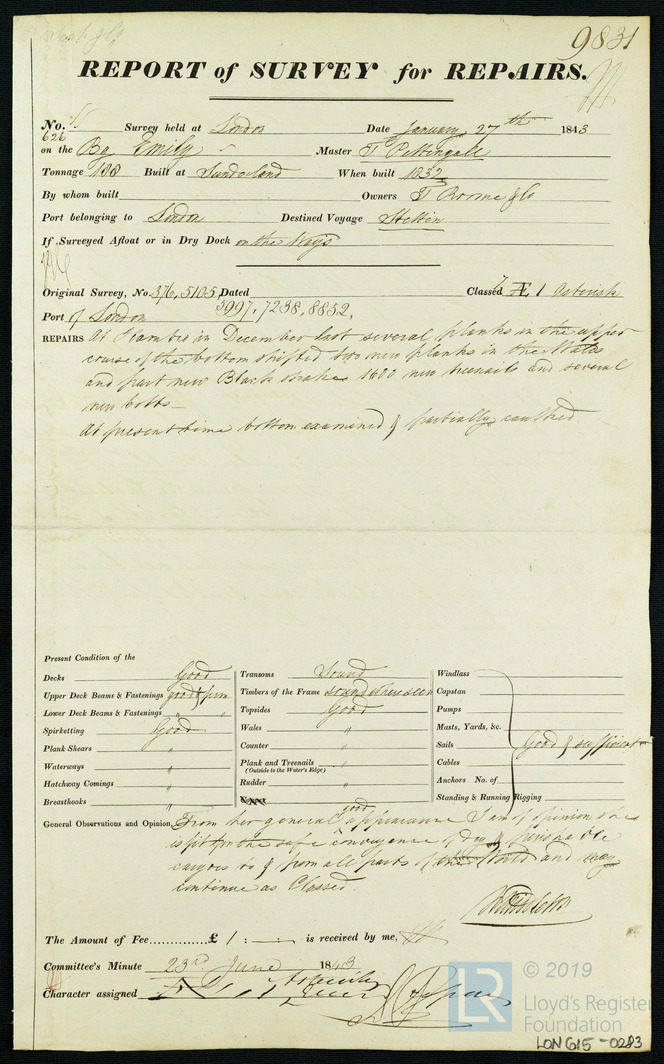 9831
REPORT of SURVEY for REPAIRS.
No. 626 Survey held at London Date January 27th 1843
on the Bg Emily Master T Pettingale
Tonnage 188 Built at Sunderland When built 1832
By whom built Owners T Roome & Co
Port belonging to London Destined Voyage Stettin
If Surveyed Afloat or in Dry Dock on the Ways
Original Survey, No. 376, 5105, Dated Classed Æ 1 Asterisk
Port of London 5997, 7238, 8852,
REPAIRS At in December last several planks in the upper
course of the bottom shifted two new planks in the Wales
and part new Black strakes 1600 new treenails and several
new bolts
At present time bottom examined & partially caulked
Present Condition of the
Decks Good
Upper Deck Beams & Fastenings good & firm
Lower Deck Beams & Fastenings " "
Spirketting Good
Plank Shears "
Waterways "
Hatchway Comings "
Breasthooks "
Transoms Sound
Timbers of the Frame sound where seen
Topsides Good
Wales "
Counter "
Plank and Treenails "
(Outside to the Water's Edge)
Rudder "
Windlass
Capstan
Pumps
Masts, Yards, &c.
Sails Good & sufficient
Cables
Anchors No. of
Standing & Running Rigging
General Observations and Opinion, From her general good appearance I am of opinion she
is fit for the safe conveyance of dry & perishable
cargoes to & from all parts of the World and may
continue as Classed.
The Amount of Fee............£ 1 : — : — is received by me,
Committee's Minute 23rd June 1843
Character assigned
© 2019
LR
Lloyd's Register
Foundation
LON615-0283